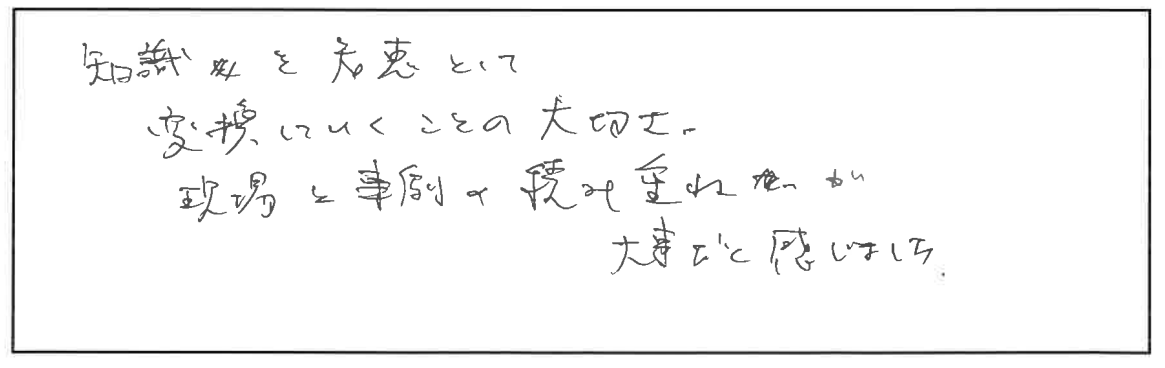 知識を知恵として
変換していくことの大切さ。
現場と事例の積み重ねが
大事だと感じました.